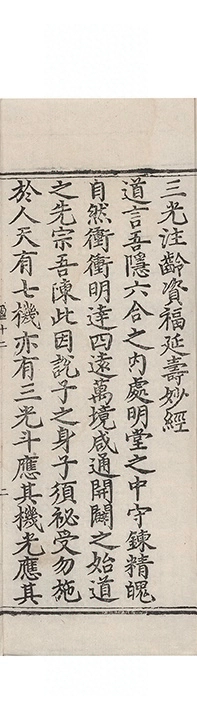 三光注齡資福延壽妙經
道言吾隱六合之内處明堂之中守鍊精魄
自然衝衝明達四遠萬境咸通開闢之始道
之先宗吾陳此因說子之身子須祕受勿施
於人天有七機亦有三光斗應其機光應其